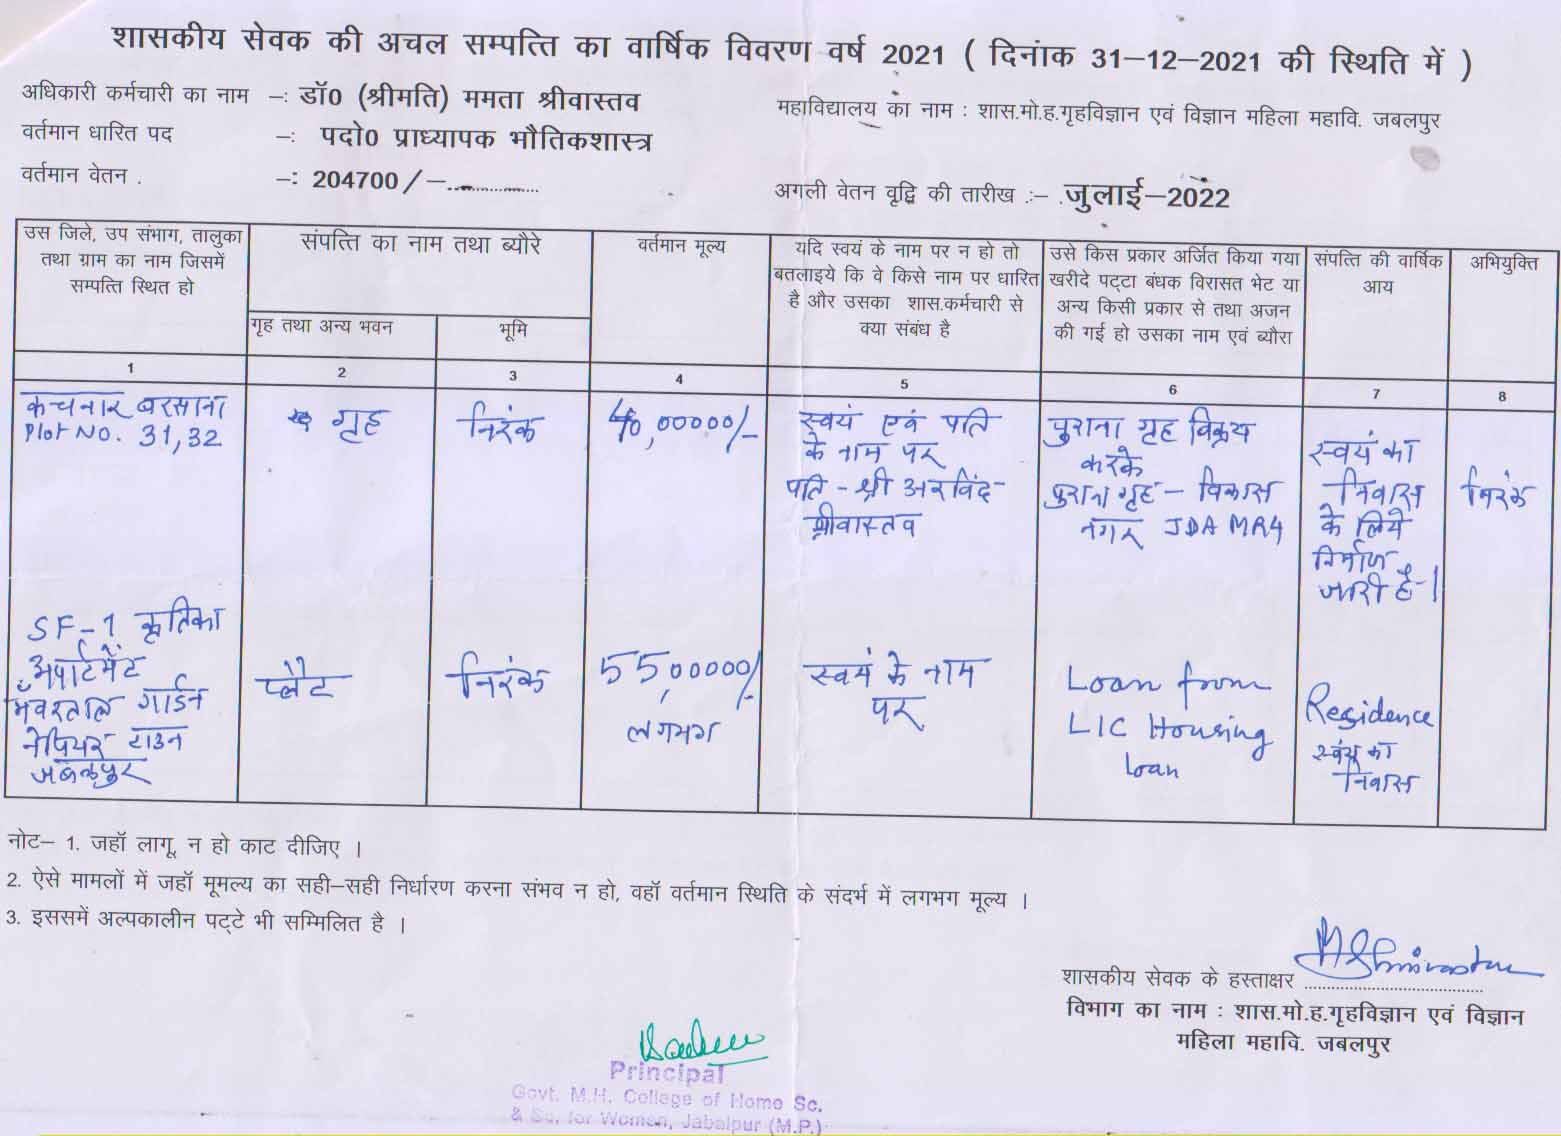 शासकीय सेवक की अचल सम्पत्ति का वार्षिक विवरण वर्ष 2021 ( दिनांक 31–12–2021 की स्थिति में )
अधिकारी कर्मचारी का नाम –: डॉ0 (श्रीमति) ममता श्रीवास्तव
महाविद्यालय का नाम : शास.मो.ह.गृहविज्ञान एवं विज्ञान महिला महावि. जबलपुर
वर्तमान धारित पद –: पदो0 प्राध्यापक भौतिकशास्त्र
वर्तमान वेतन . –: 204700/–
अगली वेतन वृद्धि की तारीख :– . जुलाई–2022
उस जिले, उप संभाग, तालुका
तथा ग्राम का नाम जिसमें
सम्पत्ति स्थित हो
संपत्ति का नाम तथा ब्यौरे
गृह तथा अन्य भवन
भूमि
वर्तमान मूल्य
यदि स्वयं के नाम पर न हो तो
बतलाइये कि वे किसे नाम पर धारित
है और उसका शास.कर्मचारी से
क्या संबंध है
उसे किस प्रकार अर्जित किया गया
खरीदे पट्टा बंधक विरासत भेट या
अन्य किसी प्रकार से तथा अजन
की गई हो उसका नाम एवं ब्यौरा
संपत्ति की वार्षिक
आय
अभियुक्ति
1 2 3 4 5 6 7 8
कचनार बरसाना
Plot NO. 31,32
गृह
निरंक
40,00000/-
स्वयं एवं पति
के नाम पर
पति - श्री अरविंद
श्रीवास्तव
पुराना गृह विक्रय
करके
पुराना गृह - विकास
नगर JDA MR4
स्वयं का
निवास
के लिये
निर्माण
जारी है।
निरंक
SF-1 कृतिका
अपार्टमेंट
भंवरताल गार्डन
नेपियर टाउन
जबलपुर
फ्लैट
निरंक
55,00000/-
लगभग
स्वयं के नाम
पर
Loan from
LIC Housing
Loan
Residence
स्वंय का
निवास
नोट– 1. जहॉ लागू न हो काट दीजिए ।
2. ऐसे मामलों में जहॉ मूमल्य का सही–सही निर्धारण करना संभव न हो, वहॉ वर्तमान स्थिति के संदर्भ में लगभग मूल्य ।
3. इससमें अल्पकालीन पट्टे भी सम्मिलित है ।
MShrivastava
शासकीय सेवक के हस्ताक्षर
विभाग का नाम : शास.मो.ह.गृहविज्ञान एवं विज्ञान
महिला महावि. जबलपुर
Principal
Govt. M.H. College of Home Sc.
& Sc. for Women, Jabalpur (M.P.)